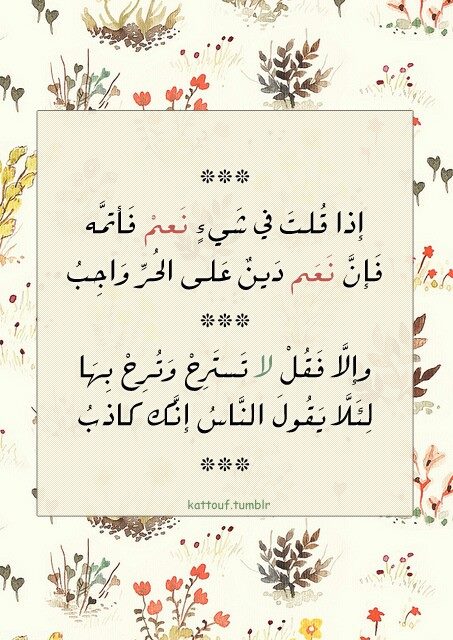 ***
إِذا قُلتَ في شَيءٍ نَعمْ فَأتمَّه
فَإنَّ نَعَم دَينٌ عَلى الحُرِّ وَاجِبُ
***
وإلَّا فَقُلْ لا تَستَرِحْ وَتُرِحْ بِهَا
لِئَلَّا يَقُولَ النَّاسُ إنَّك كاذبُ
***
kattouf.tumblr